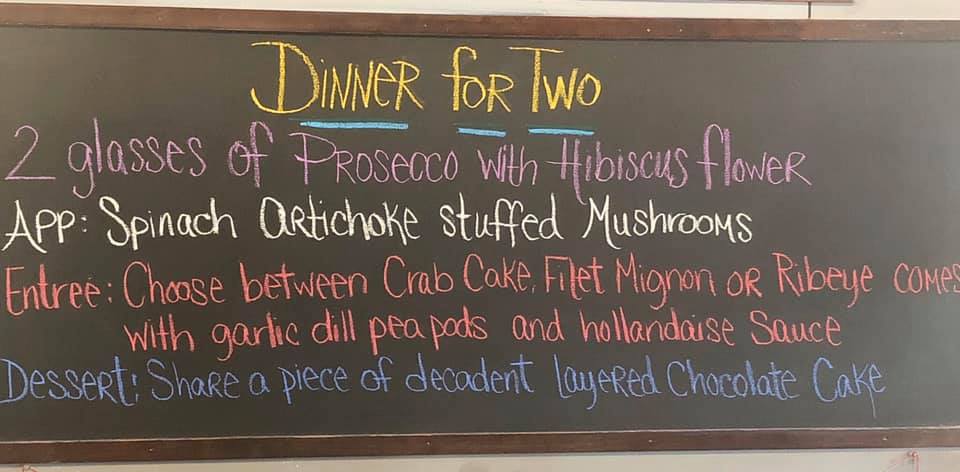 Dinner for Two
2 glasses of Prosecco with Hibiscus flower
App: Spinach Artichoke stuffed Mushrooms
Entree: Choose between Crab Cake, Filet Mignon or Ribeye comes
with garlic dill pea pods and hollandaise Sauce
Dessert: Share a piece of decadent layered Chocolate Cake